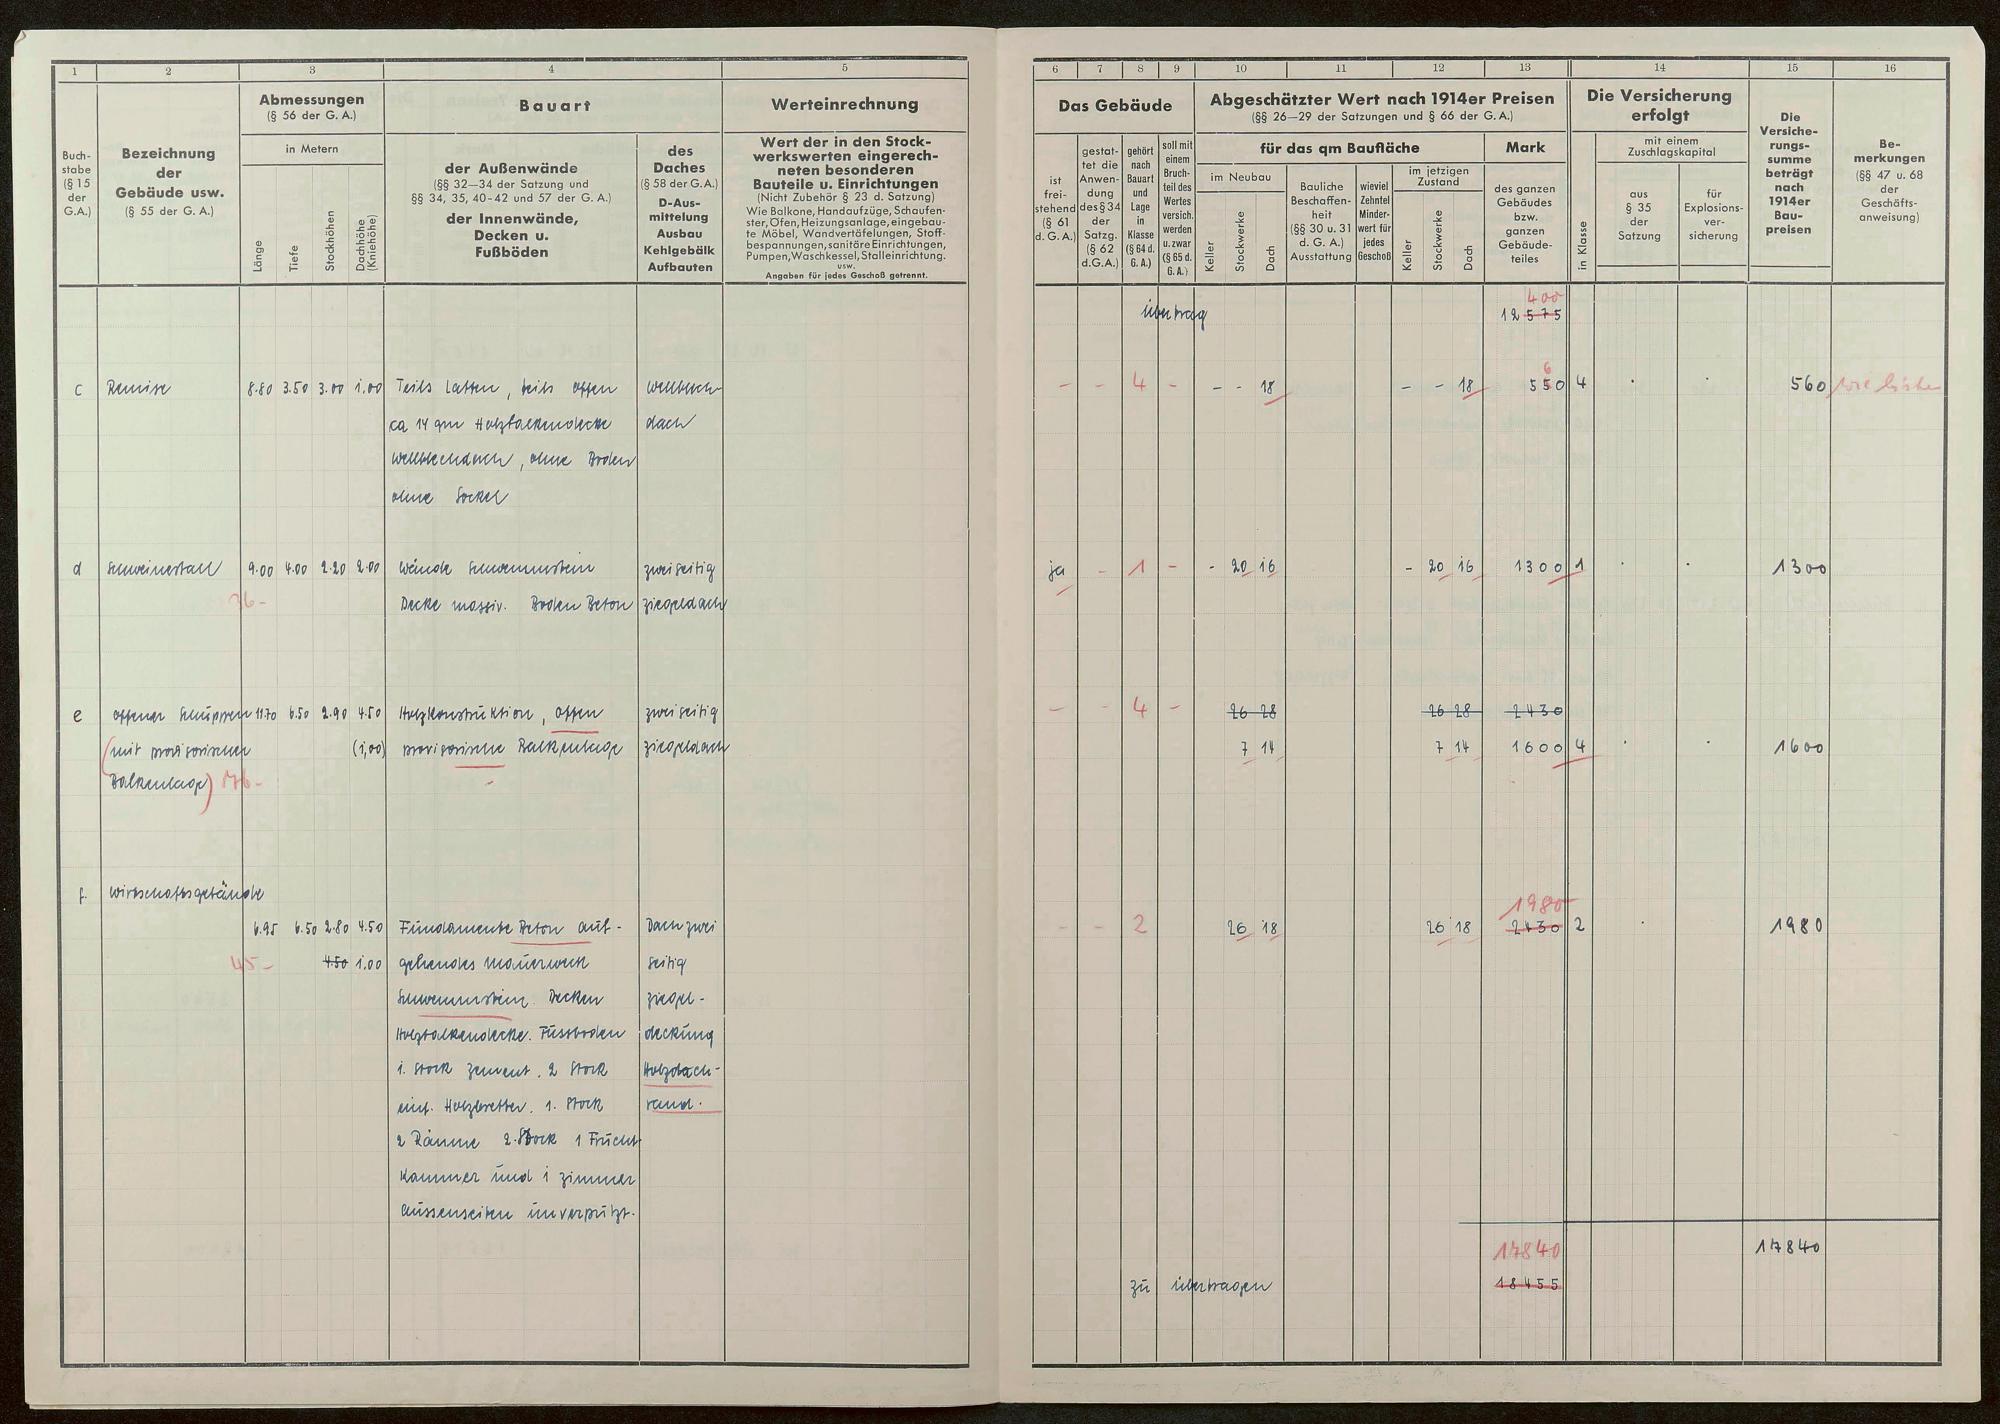 1 2 3 4 5
Buch-
stabe
(§ 15
der
G.A.)
Bezeichnung
der
Gebäude usw.
(§ 55 der G. A.)
Abmessungen
(§ 56 der G. A.)
in Metern
Länge
Tiefe
Stockhöhen
Dachhöhe
(Kniehöhe)
Bauart
der Außenwände
(§§ 32—34 der Satzung und
§§ 34, 35, 40-42 und 57 der G. A.)
der Innenwände,
Decken u.
Fußböden
des
Daches
(§ 58 der G.A.)
D-Aus-
mittelung
Ausbau
Kehlgebälk
Aufbauten
Werteinrechnung
Wert der in den Stock-
werkswerten eingerech-
neten besonderen
Bauteile u. Einrichtungen
(Nicht Zubehör § 23 d. Satzung)
Wie Balkone, Handaufzüge, Schaufen-
ster, Öfen, Heizungsanlage, eingebau-
te Möbel, Wandvertäfelungen, Stoff-
bespannungen, sanitäre Einrichtungen,
Pumpen, Waschkessel, Stalleinrichtung.
usw.
Angaben für jedes Geschoß getrennt.
c Remise 8.80 3.50 3.00 1.00 Teils Latten, teils offen Wellblech-
ca 14 qm Holzbalkendecke dach
Wellblechdach, ohne Boden
ohne Sockel
d Schweinestall 9.00 4.00 2.20 2.00 Wände Schwemmstein zweiseitig
36- Decke massiv. Boden Beton ziegeldach
e offener Schuppen 11.70 6.50 2.90 4.50 Holzkonstruktion, offen zweiseitig
(mit provisorischer (1,00) provisorische Balkenlage ziegeldach
Balkenlage) 76-
f. Wirtschaftsgebäude
6.95 6.50 2.80 4.50 Fundamente Beton auf- Dach zwei
45- 4.50 1.00 gehendes Mauerwerk seitig
Schwemmstein. Decken ziegel-
Holzbalkendecke. Fussboden deckung
1. Stock Zement. 2 Stock Holzdach-
einf. Holzbretter. 1. Stock rand.
2 Räume 2. Stock 1 Frucht
kammer und 1 zimmer
Aussenseiten unverputzt.
6 7 8 9 10 11 12 13 14 15 16
Das Gebäude
ist
frei-
stehend
(§ 61
d. G.A.)
gestat-
tet die
Anwen-
dung
des § 34
der
Satzg.
(§ 62
d.G.A.)
gehört
nach
Bauart
und
Lage
in
Klasse
(§ 64 d.
G. A.)
soll mit
einem
Bruch-
teil des
Wertes
versich.
werden
u. zwar
(§ 65 d.
G. A.)
Abgeschätzter Wert nach 1914er Preisen
(§§ 26—29 der Satzungen und § 66 der G. A.)
für das qm Baufläche
im Neubau
Keller
Stockwerke
Dach
Bauliche
Beschaffen-
heit
(§§ 30 u. 31
d. G. A.)
Ausstattung
wieviel
Zehntel
Minder-
wert für
jedes
Geschoß
im jetzigen
Zustand
Keller
Stockwerke
Dach
Mark
des ganzen
Gebäudes
bzw.
ganzen
Gebäude-
teiles
Die Versicherung
erfolgt
in Klasse
mit einem
Zuschlagskapital
aus
§ 35
der
Satzung
für
Explosions-
ver-
sicherung
Die
Versiche-
rungs-
summe
beträgt
nach
1914er
Bau-
preisen
Be-
merkungen
(§§ 47 u. 68
der
Geschäfts-
anweisung)
400
übertrag 12575
6
- - 4 - - - 18 - - 18 550 4 560 wie bisher
ja - 1 - - 20 16 - 20 16 1300 1 1300
- - 4 - 26 28 26 28 2430
7 14 7 14 1600 4 1600
1980
- - 2 26 18 26 18 2430 2 1980
17840 17840
zu übertragen 18455